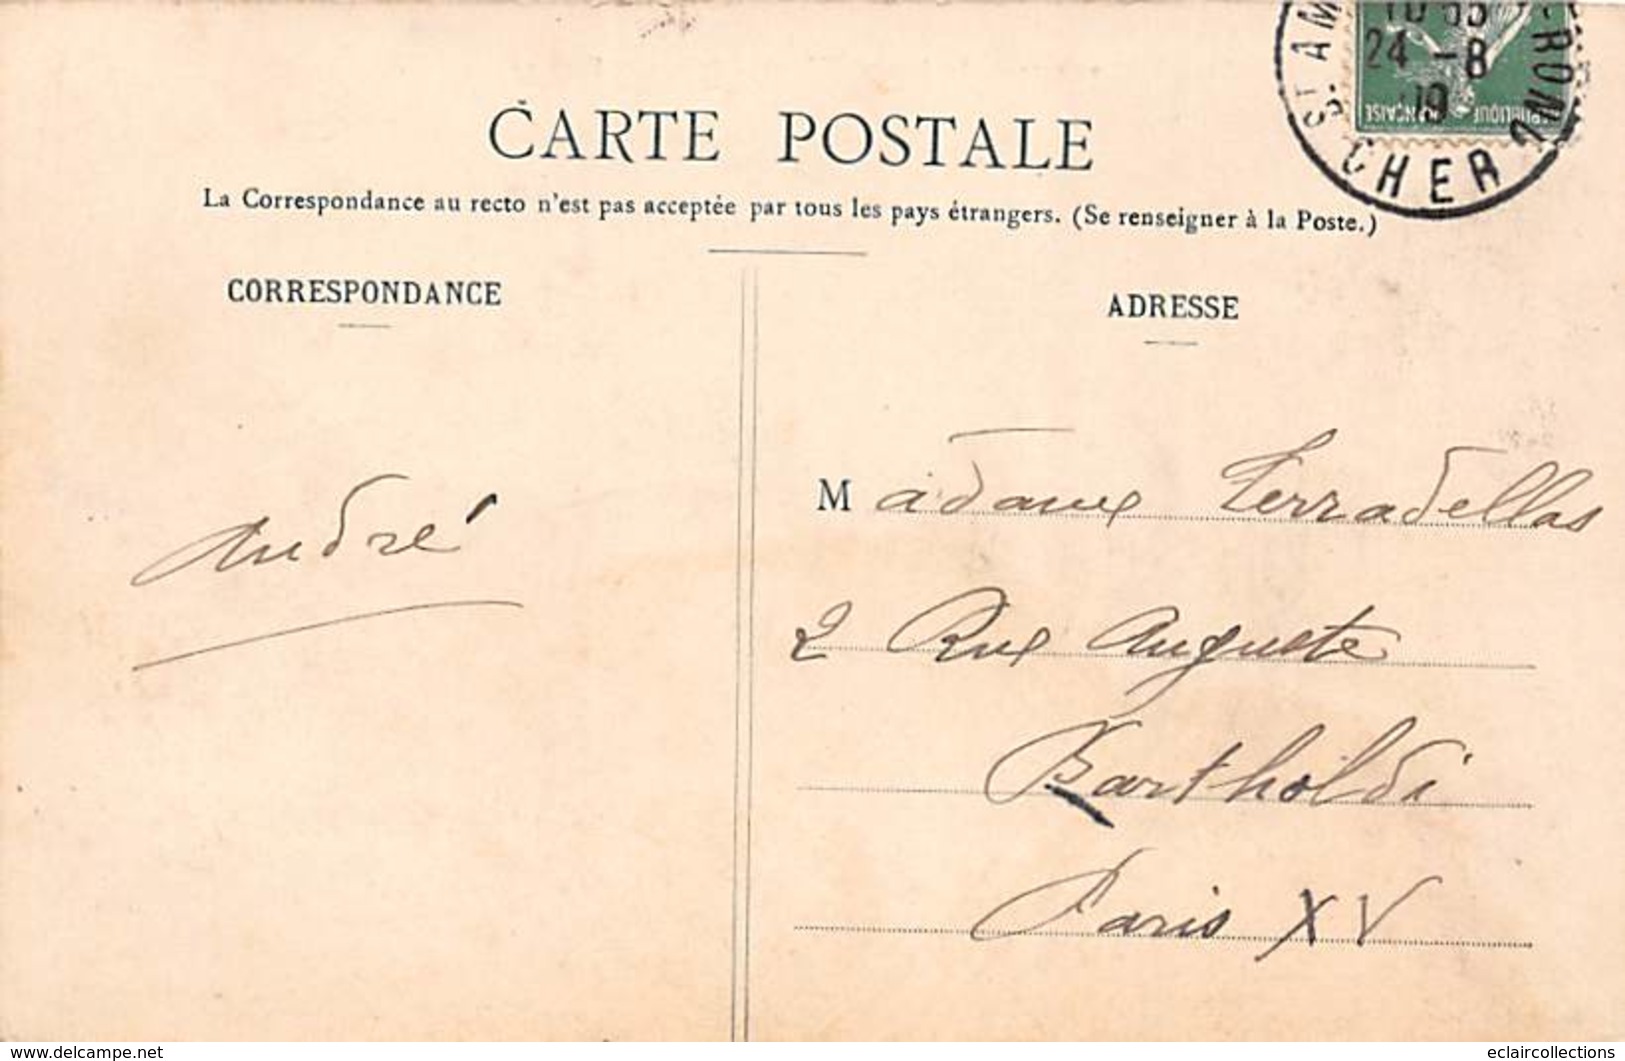 CARTE POSTALE
La Correspondance au recto n'est pas acceptée par tous les pays étrangers. (Se renseigner à la Poste.)
CORRESPONDANCE
ADRESSE
ST AM
RON
CHER
10 55
24 -8
09
FRANÇAISE
André
Madame Terradellas
2 Rue Auguste
Bartholdi
Paris XV
www.delcampe.net
eclaircollections